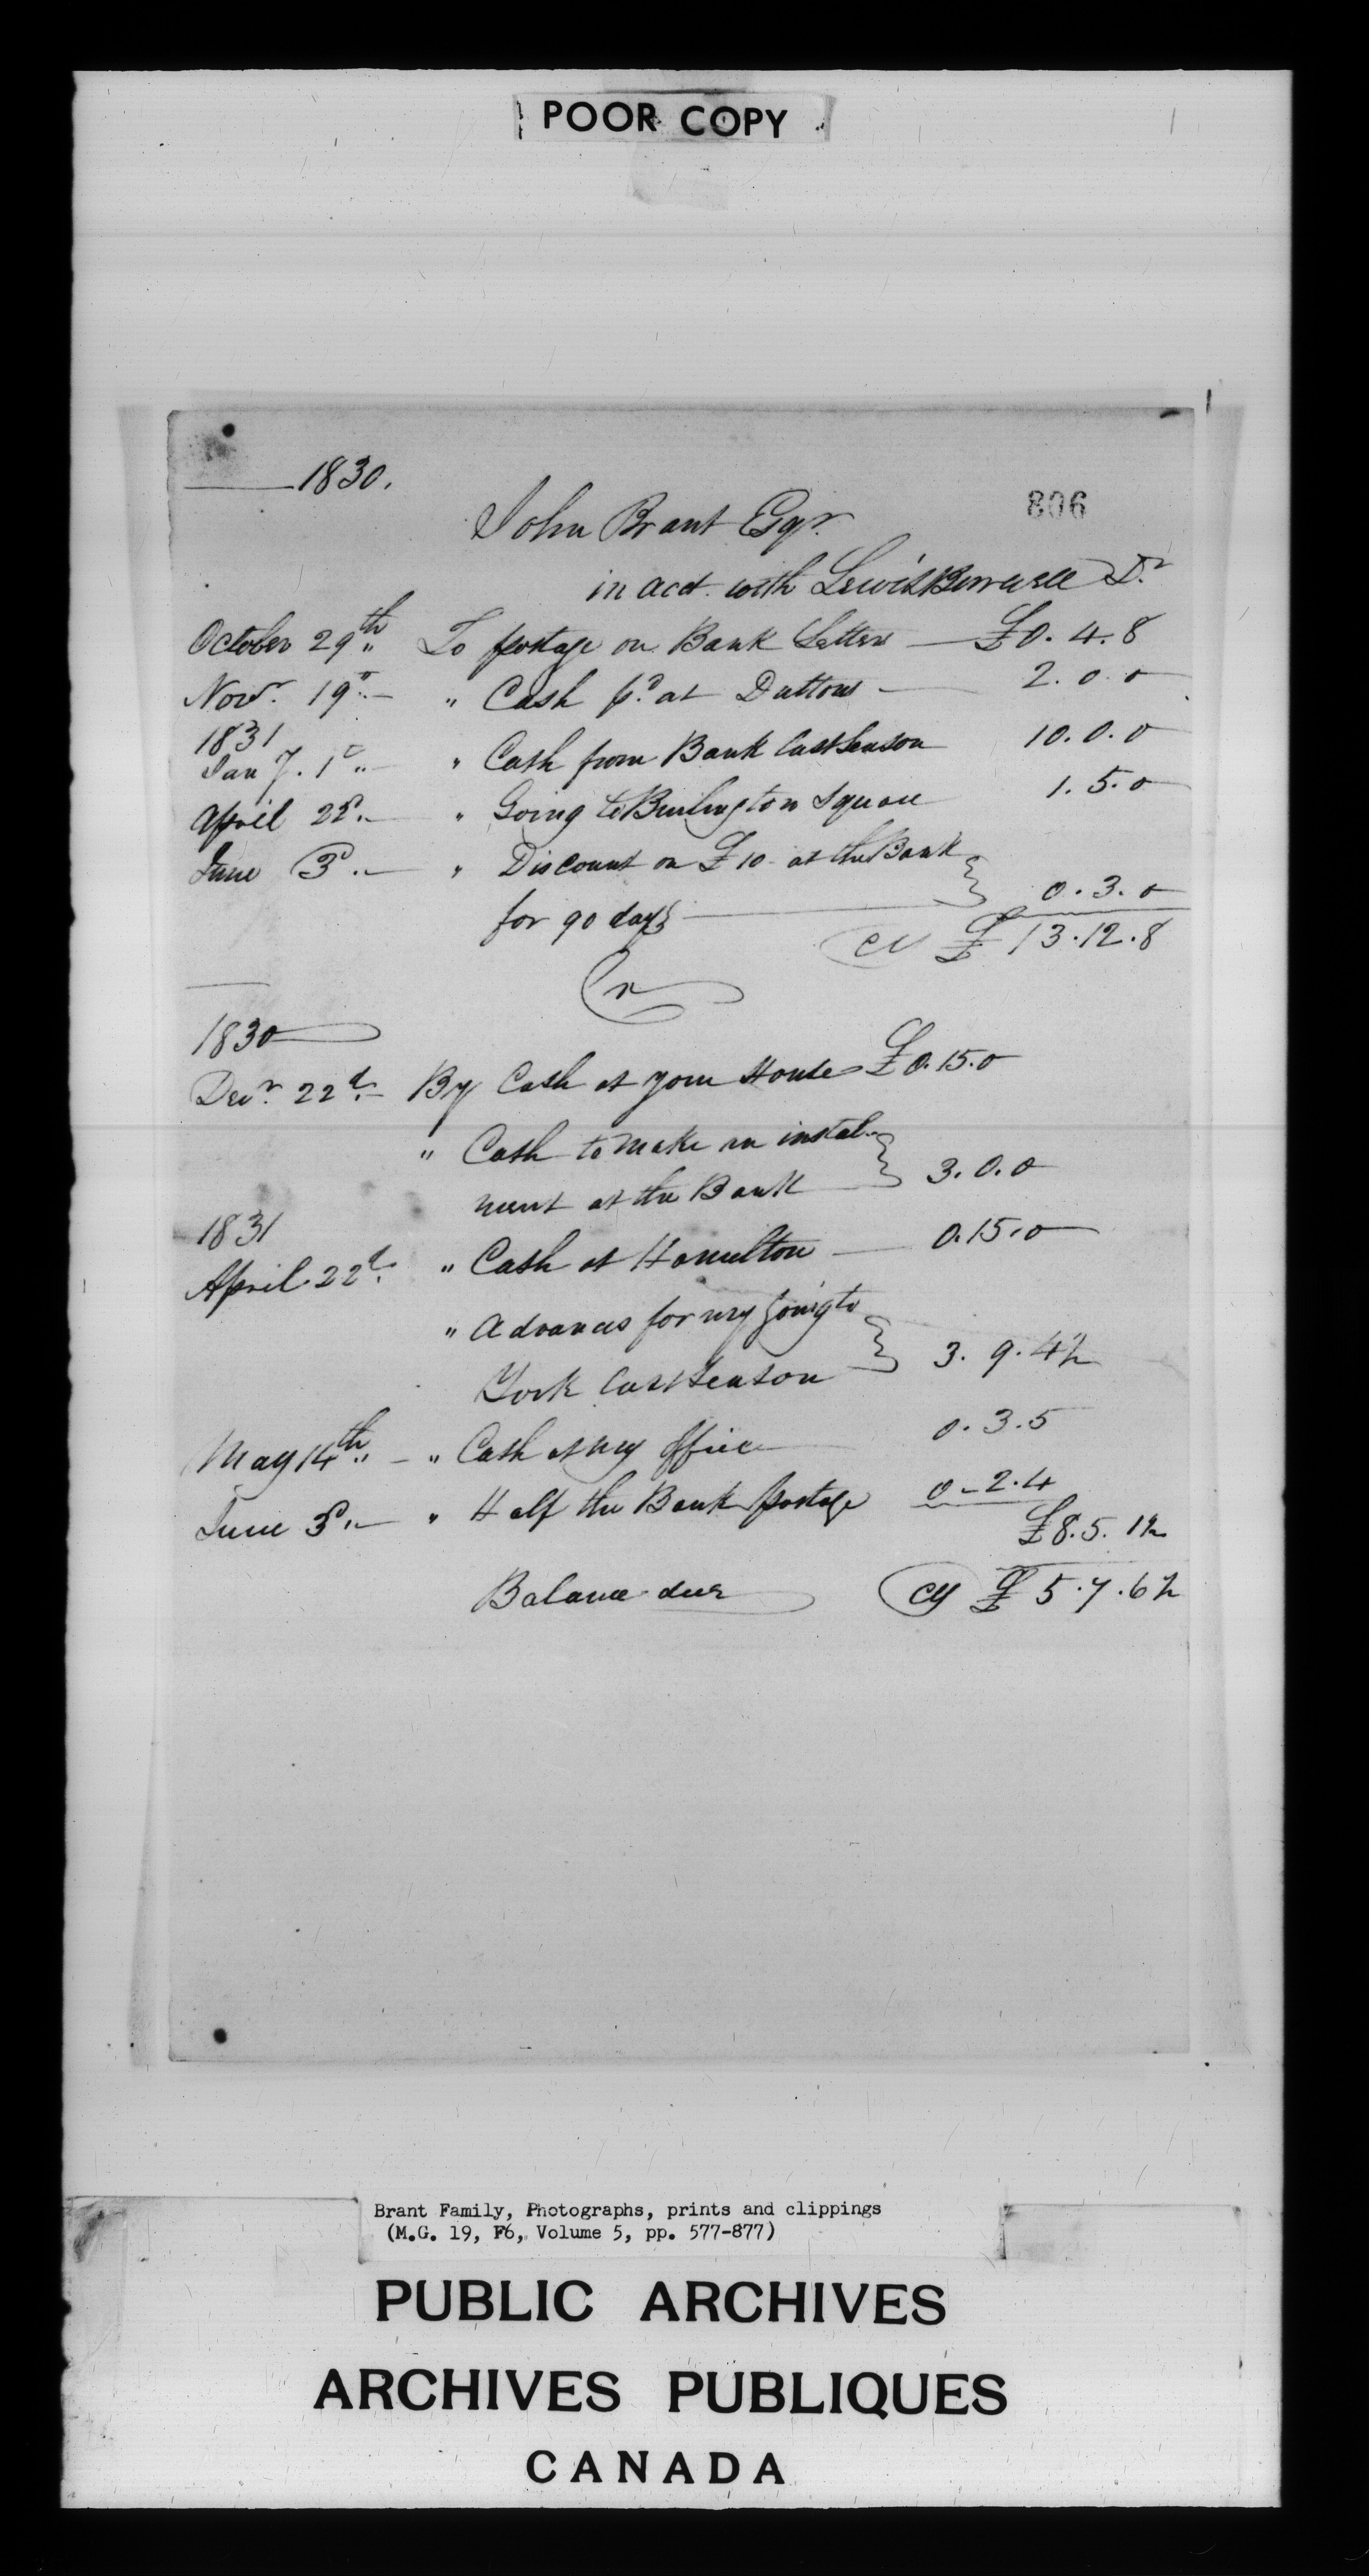 POOR COPY
1830.
806
John Brant Esqr.
in acct. with Lewis Burwell Dr.
October 29th To postage on Bank Letters — £0. 4. 8
Novr. 19th — " Cash pd. at Duttons — 2. 0. 0
1831
Jan 7. — " Cash from Bank last season 10. 0. 0
April 22d. — " Going to Burlington Square 1. 5. 0
June 3d. — " Discount on £10 at the Bank
for 90 days — 0. 3. 0
Cy £13. 12. 8
Cr
1830
Decr. 22d. — By Cash at your House £0. 15. 0
" Cash to make an instal-
ment at the Bank — 3. 0. 0
1831
April 22d. " Cash at Hamilton — 0. 15. 0
" Advances for my going to
York last season 3. 9. 4½
May 14th — " Cash at my office 0. 3. 5
June 3d. — " Half the Bank postage 0 - 2. 4
£8. 5. 1½
Balance due Cy £5. 7. 6½
Brant Family, Photographs, prints and clippings
(M.G. 19, F6, Volume 5, pp. 577-877)
PUBLIC ARCHIVES
ARCHIVES PUBLIQUES
CANADA